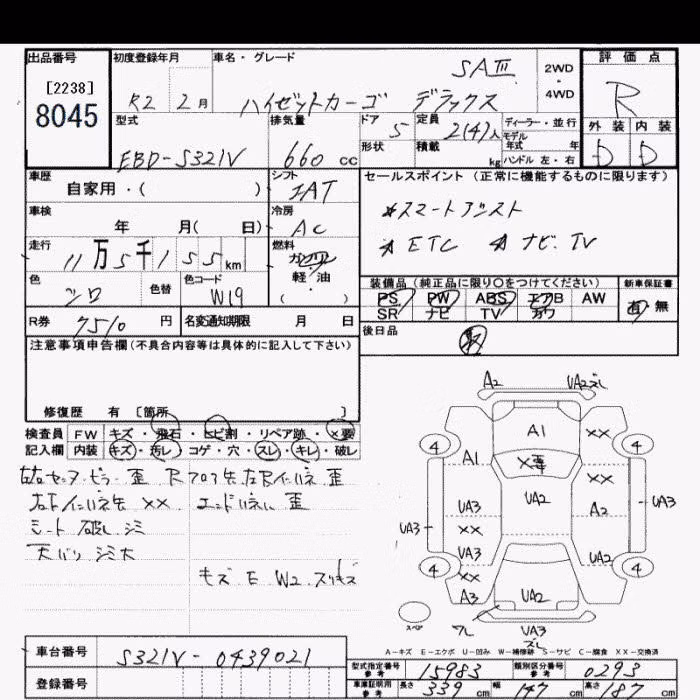 出品番号 初度登録年月 車名・グレード 評価点
[2238] SAⅢ 2WD
・
4WD R
8045 R2 2月 ハイゼットカーゴ デラックス
型式 排気量 ドア 定員 ディーラー・並行 外装 内装
EBD-S321V 660cc 5 2(4)人 モデル年式 年 D D
形状 積載 kg ハンドル 左・右
車歴 シフト セールスポイント(正常に機能するものに限ります)
自家用・( ) IAT
車検 冷房 *スマートアシスト
年 月( 日) AC *ETC *ナビ.TV
走行 燃料
11万5千155km ガソリン
軽・油
( )
色 色替 色コード 装備品(純正品に限り○をつけてください) 新車保証書
シロ W19 PS PW ABS エアB AW 有 無
SR ナビ TV カワ
R券 7510円 名変通知期限 月 日 後日品
注意事項申告欄(不具合内容等は具体的に記入して下さい)
修復歴 有 [箇所 ]
検査員 FW キズ・飛石・ヒビ割・リペア跡・×要
記入欄 内装 キズ・汚レ・コゲ・穴・スレ・キレ・破レ
歪 Rフロア
×× 歪
シート 破レ シミ
天バリ シミ大
キズ E W2 スリキズ
A2 UA2ズレ
A1 ××
4 4
A1 ×要
××
UA3 UA2 A2 UA3
UA3 ××
UA3 UA2
4 4
××
A3 UA2
スペア ワレ UA3
ズレ
A-キズ E-エクボ U-凹み W-補修跡 S-サビ C-腐食 ××-交換済
車台番号 S321V-0439021
登録番号
型式指定番号 参考 15983 類別区分番号 参考 0293
車庫証明用 参考 長さ 339cm 幅 147cm 高さ 187cm